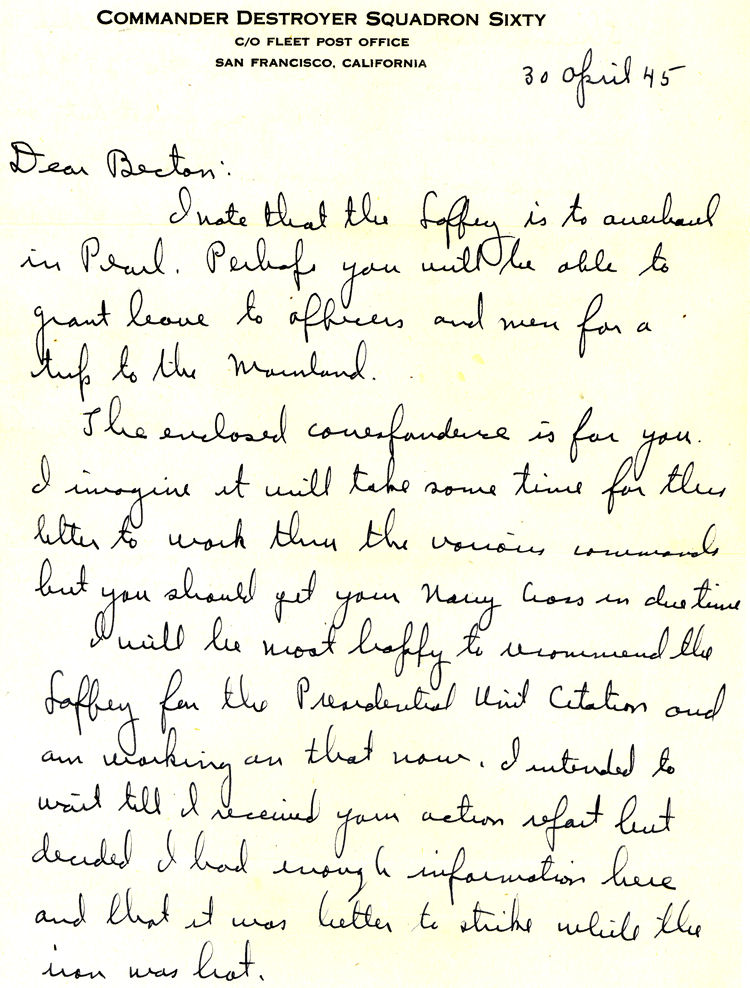 COMMANDER DESTROYER SQUADRON SIXTY
C/O FLEET POST OFFICE
SAN FRANCISCO, CALIFORNIA
30 April 45
Dear Becton:
I note that the Laffey is to overhaul
in Pearl. Perhaps you will be able to
grant leave to officers and men for a
trip to the Mainland.
The enclosed correspondence is for you.
I imagine it will take some time for this
letter to work thru the various commands
but you should get your Navy Cross in due time
I will be most happy to recommend the
Laffey for the Presidential Unit Citation and
am working on that now. I intended to
wait till I received your action report but
decided I had enough information here
and that it was better to strike while the
iron was hot.